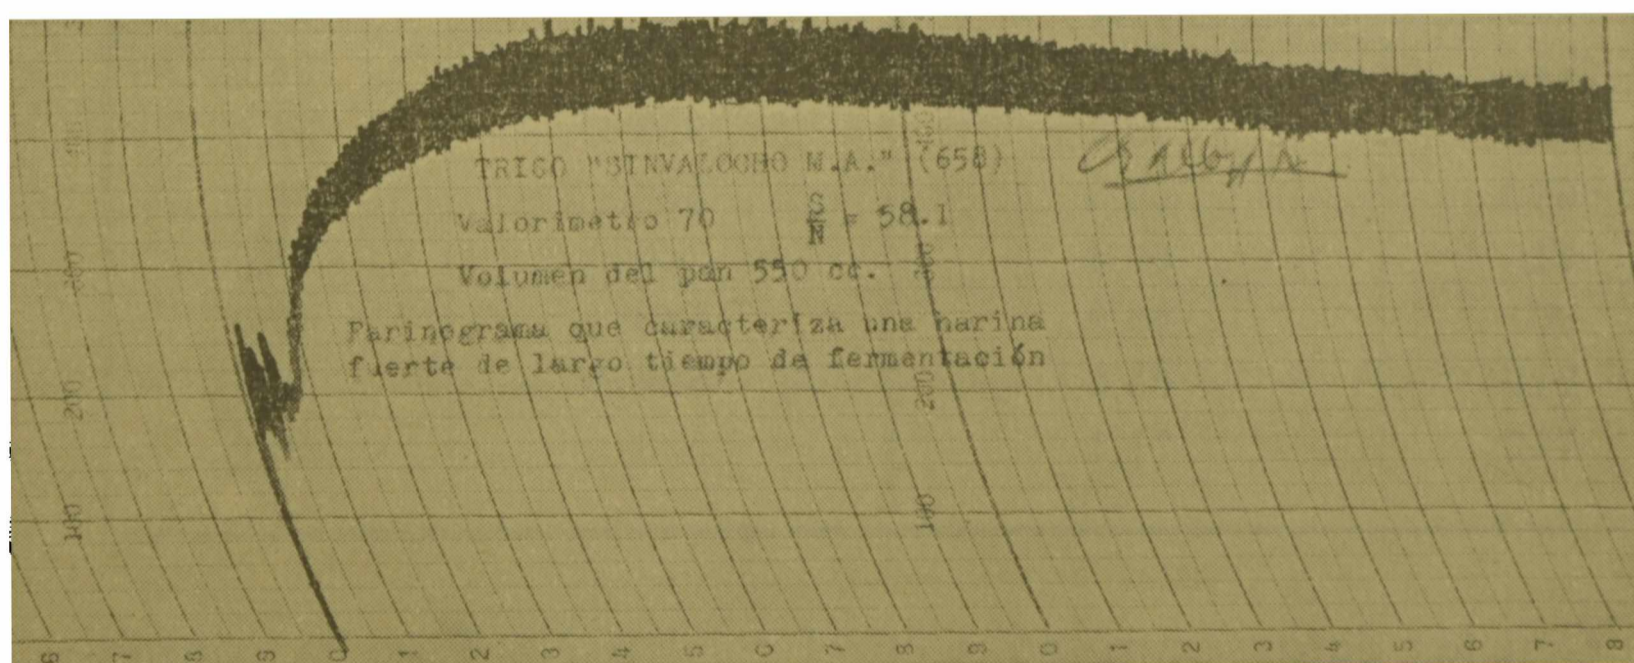 400
400
TRIGO "SINVALOCHO M.A." (658)
Valorimetro 70 = 58.1
300
300
Volumen del pan 550 cc.
Farinograma que caracteriza una harina
fuerte de largo tiempo de fermentación
200
200
100
100
6 7 8 9 0 1 2 3 4 5 6 7 8 9 0 1 2 3 4 5 6 7 8